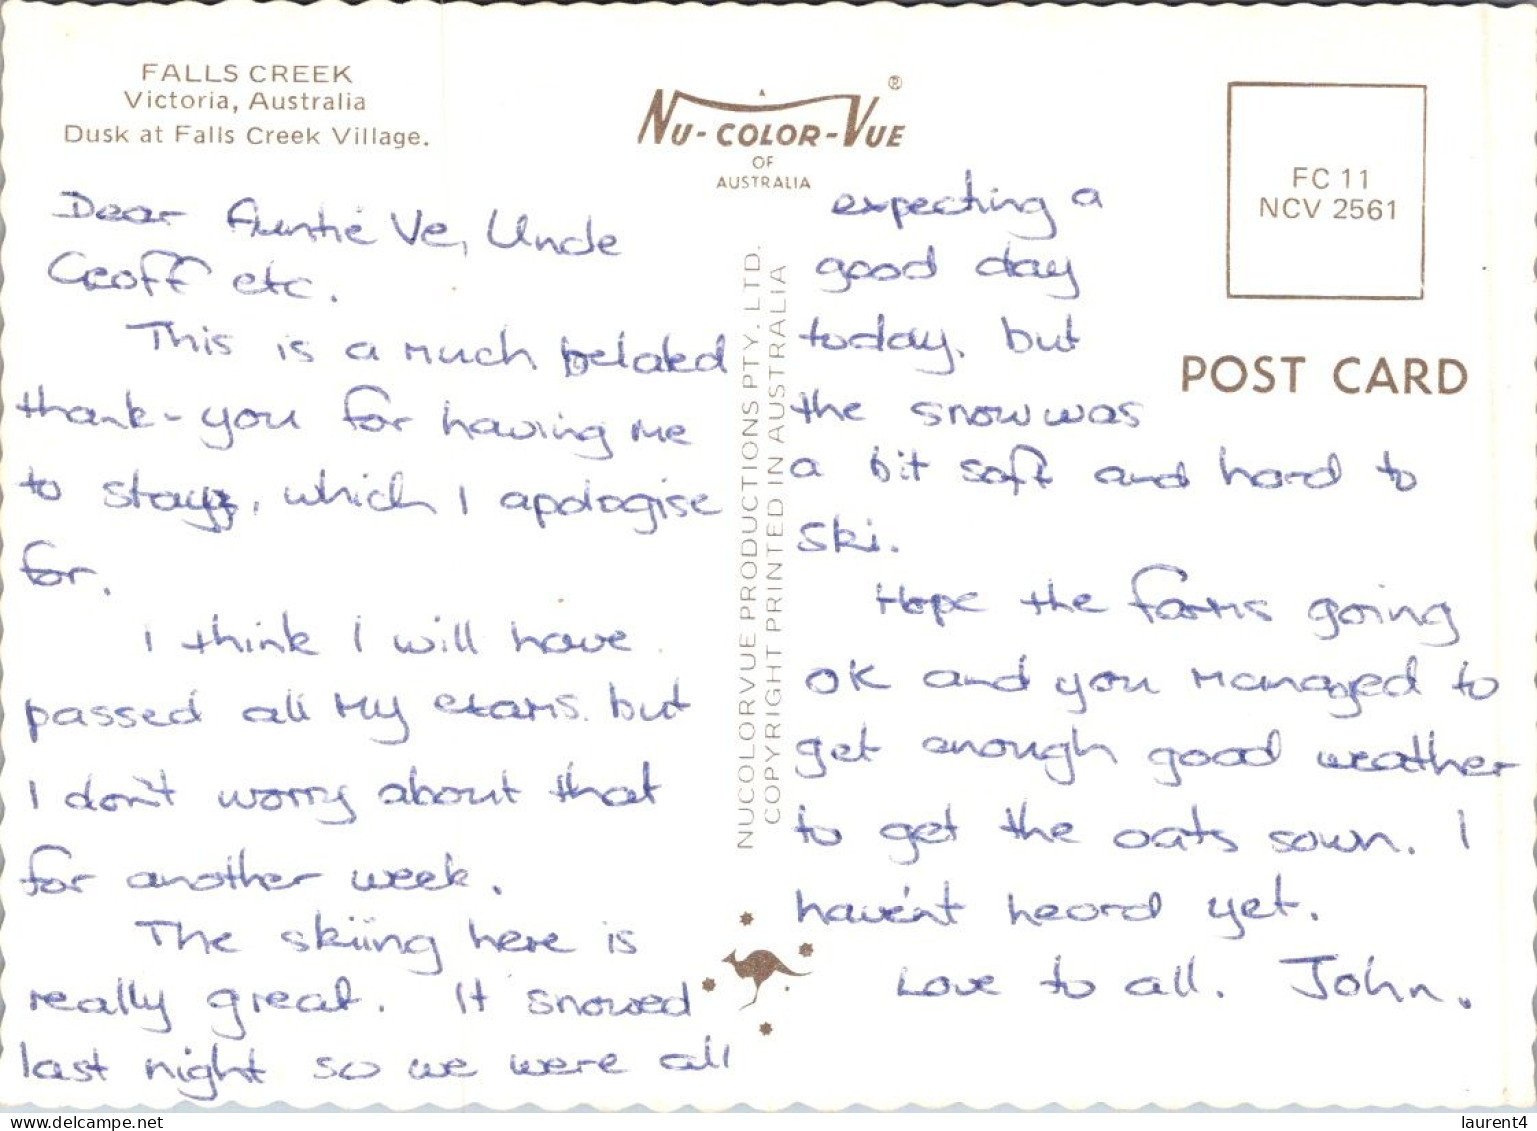 FALLS CREEK
Victoria, Australia
Dusk at Falls Creek Village.
NU-COLOR-VUE ®
OF
AUSTRALIA
FC 11
NCV 2561
POST CARD
NUCOLORVUE PRODUCTIONS PTY. LTD.
COPYRIGHT PRINTED IN AUSTRALIA
Dear Auntie Ve, Uncle
Geoff etc.
This is a much belated
thank-you for having me
to stay, which I apologise
for.
I think I will have
passed all my exams. but
I don't worry about that
for another week.
The skiing here is
really great. It snowed
last night so we were all
expecting a
good day
today, but
the snow was
a bit soft and hard to
ski.
Hope the farms going
OK and you managed to
get enough good weather
to get the oats sown. I
haven't heard yet.
Love to all. John.
laurent4